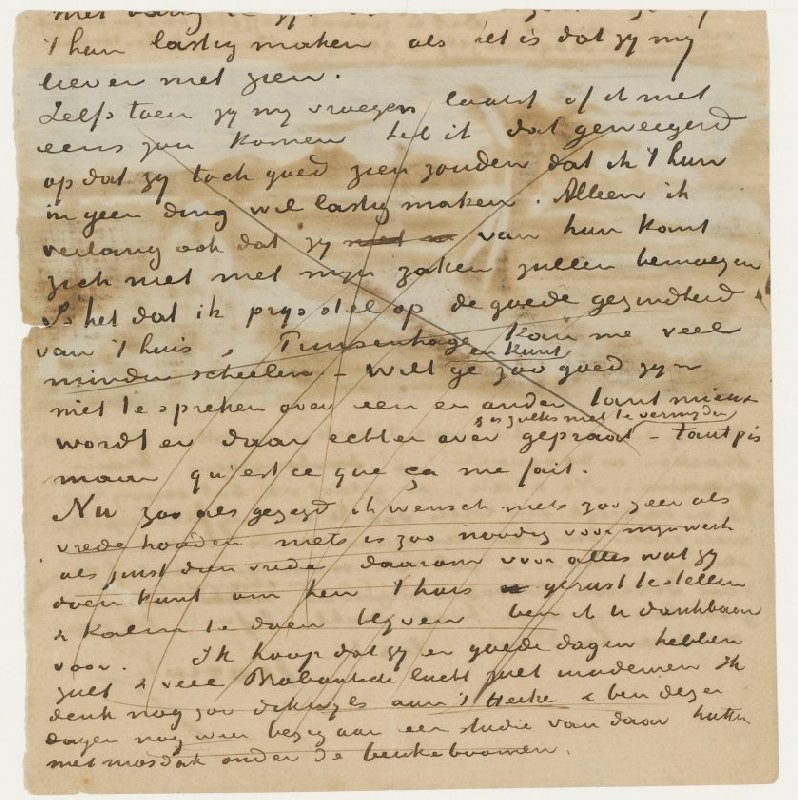 't hun lastig maken als het is dat zy my
liever niet zien.
Zelfs toen zy my vroegen laatst of ik niet
eens zou komen heb ik dat geweigerd
opdat zy toch goed zien zouden dat ik 't hun
in geen ding wil lastig maken. Alleen ik
verlang ook dat zy van hun kant
zich niet met myn zaken zullen bemoeyen
Is het dat ik prys stel op de goede gezindheid
van 't huis, Prinsenhage kan me veel
minder scheelen – Wilt ge zoo goed zyn
en kunt
niet te spreken over een en ander tant mieux
is zulks niet te vermyden
wordt er daar echter over gepraat – tant pis
maar qu'est ce que ça me fait.
Nu zoo als gezegd ik wensch niets zoo zeer als
vrede houden niets is zoo noodig voor myn werk
als juist dien vrede daarom voor alles wat gy
doen kunt om hen 't huis gerust te stellen
& Kalm te doen blyven ben ik U dankbaar
voor. Ik hoop dat gy er goede dagen hebben
zult & veel Brabantsche lucht zult inademen Ik
denk nog zoo dikwyls aan 't Heike & ben dezer
dagen nog weer bezig aan een studie van daar hutten
met mosdak onder de beukeboomen.